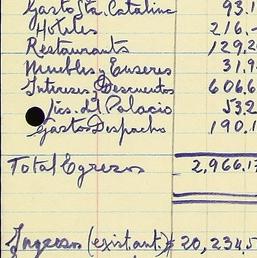 Gasto Sta. Catalina 93.1
Hoteles 216.-
Restaurants 129,20
Muebles, Enseres 31.9
Intereses, Descuentos 606.6
del Palacio 532
Gastos Despacho 190.1
Total Egresos 2,966.17
Ingresos (exist. ant.) $ 20,234,5